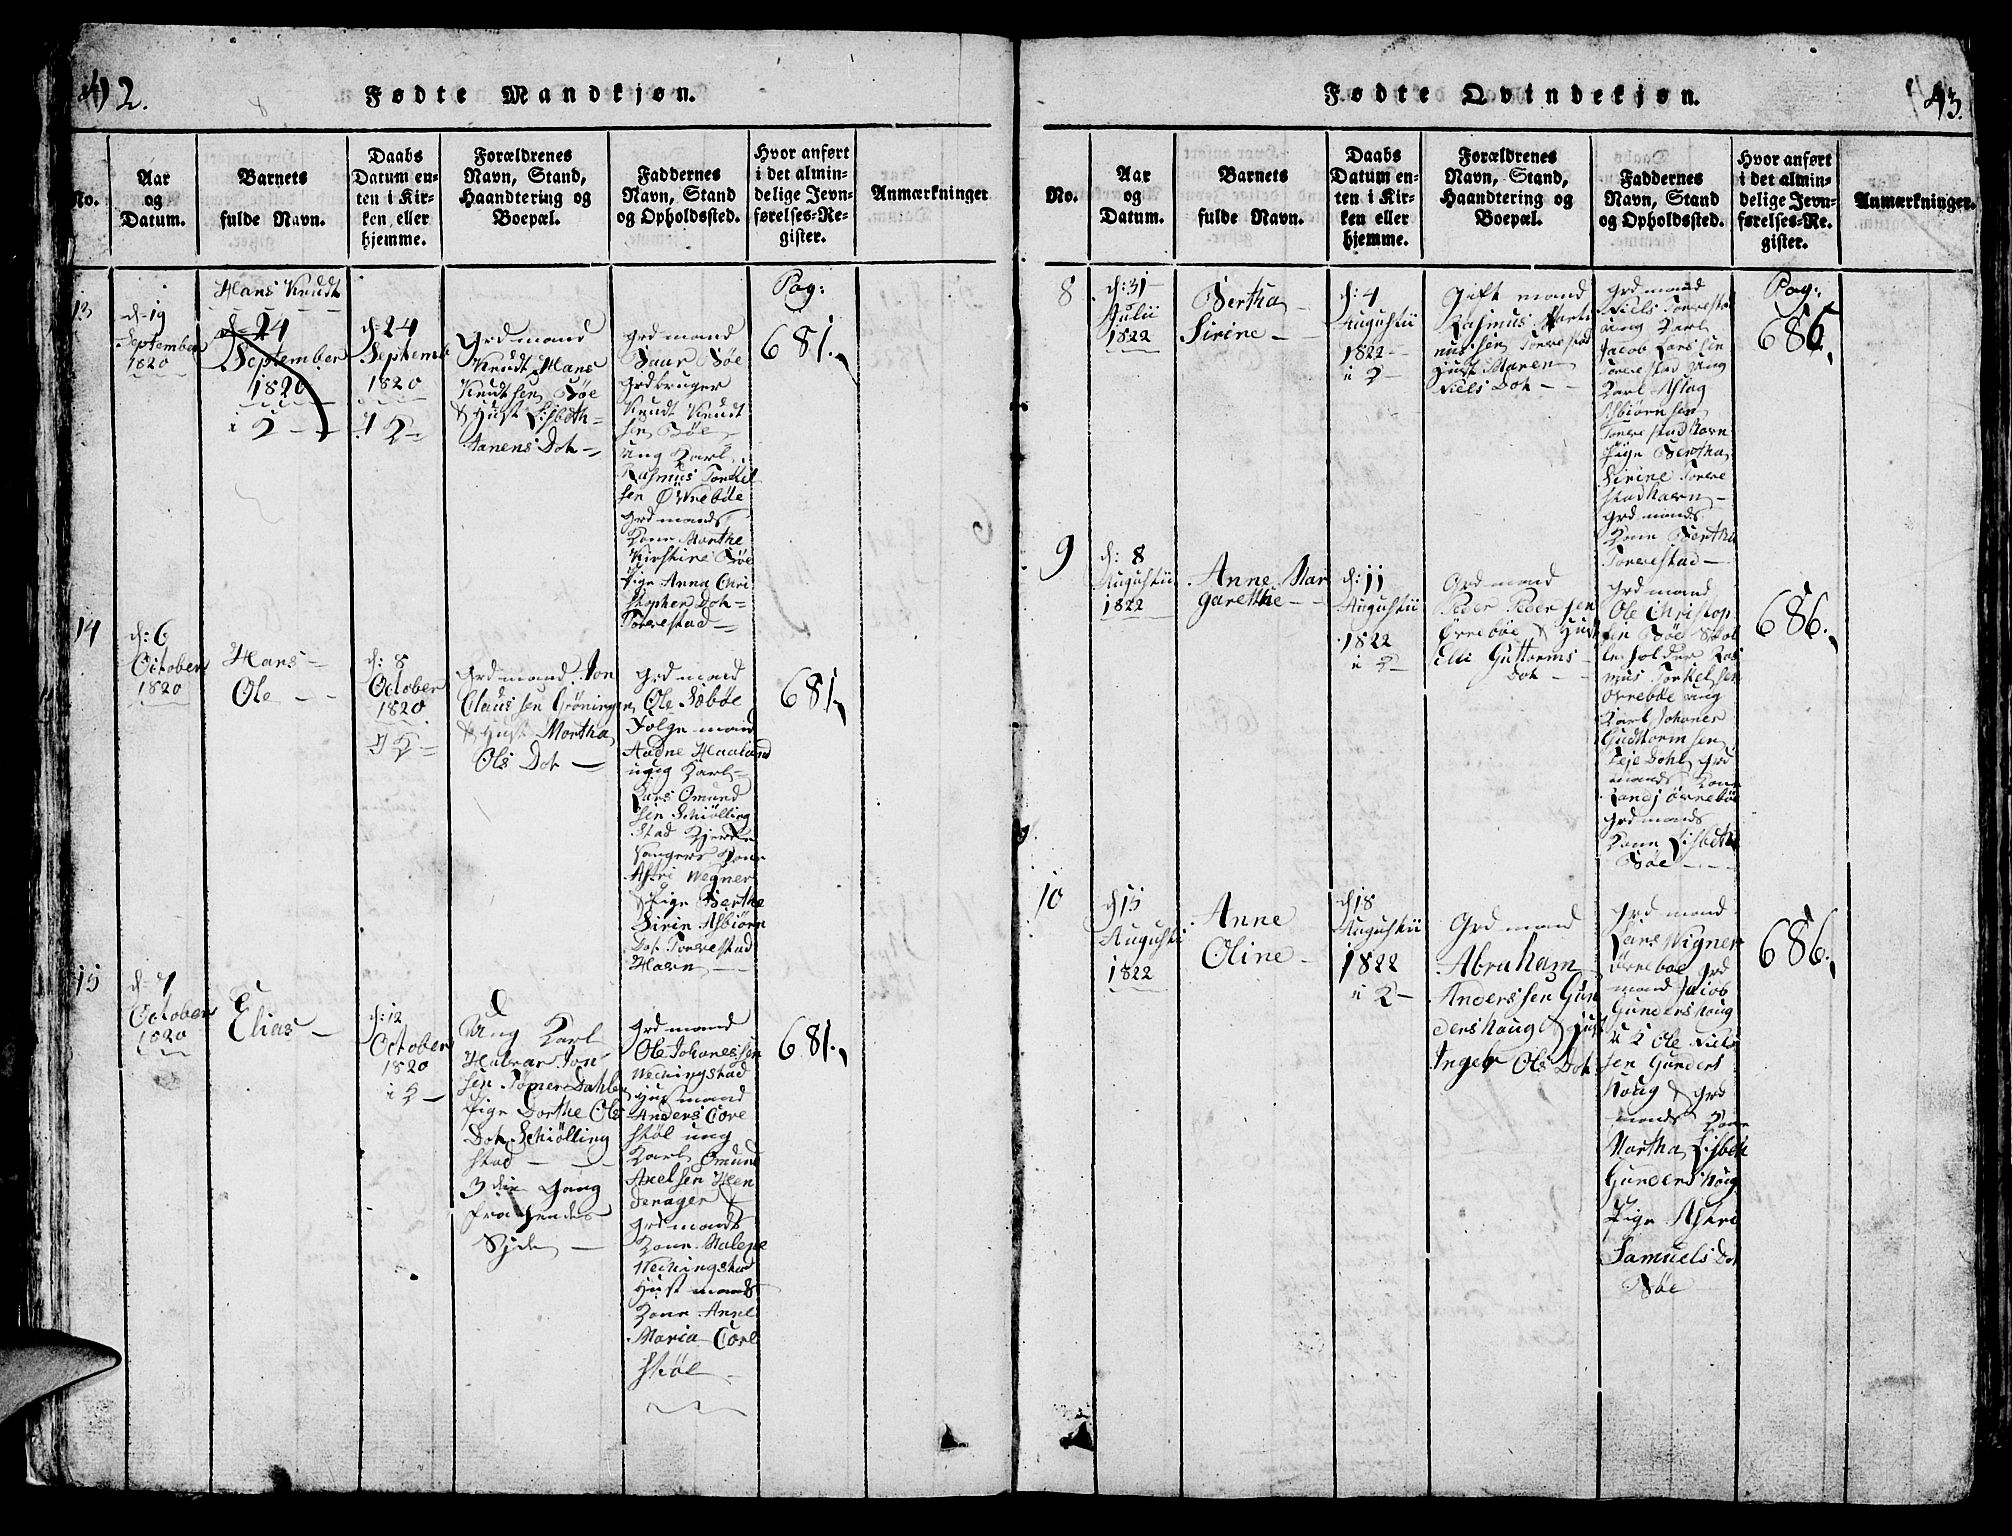 42.
Fødte Mandkjøn.
No.
Aar
og
Datum.
Barnets
fulde Navn.
Daabs
Datum en-
ten i Kir-
ken eller
hjemme.
Forældrenes
Navn, Stand,
Haandtering og
Boepæl.
Faddernes
Navn, Stand
og Opholdssted.
Hvor anført
i det almin-
delige Jevn-
førelses-Re-
gister.
Anmærkninger
13
d. 19
September
1820
Hans Knudt
d. 24
September
1820
i K
d. 24
Septemb
1820
i K
Grd mand
Knudt Hans
Knudtsen Bøe
& Hust Lisbeth
Hanens Dot
Grd mand
Baar Bøe
Grdbruger
Knudt Knudt
sen Bøe
ung Karl
Rasmus Torkil
sen Øvrebøe
Grd mands
Kone Marthe
Kirstine Bøe
Pige Anna Chri
stopher Dot
Torvestad
Pag:
681.
14
d: 6
October
1820
Hans
Ole
d: 8
October
1820
i K
Grd mand Jon
Claussen Grøninger
& Hust Martha
Ols Dot
Grd mand
Ole Sæbøe
Følge mand
Aadne Haaland
ung Karl
Lars Omund
sen Schiølling
stad Kjerke
Sangers Kone
Astri Wegner
& Pige Berthe
Sirin Asbiørn
Dot Torvestad
Havn
681.
15
d. 7
October
1820
Elias
d: 12
October
1820
i K
Ung Karl
Halvar Jon
sen Dahlen
Pige Dorthe Ols
Dot Schiølling
stad
3die Gang
fra hendes
Side
Grd mand
Ole Johanessen
Wechingstad
Huusmand
Anders Core
støl ung
Karl Omund
Axelsen Heen
derager &
Grd mands
Kone Malene
Wechingstad
Hust mands
Kone Anne
Maria Corl
støl
681.
43.
Fødte Qvindekjøn.
No.
Aar
og
Datum.
Barnets
fulde Navn.
Daabs
Datum en-
ten i Kir-
ken eller
hjemme.
Forældrenes
Navn, Stand,
Haandtering og
Boepæl.
Faddernes
Navn, Stand
og Opholdssted.
Hvor anført
i det almin-
delige Jevn-
førelses-Re-
gister.
Anmærkninger.
8
d: 31
Julii
1822
Bertha
Sirine
d: 4
Augustii
1822
i K
Gift mand
Rasmus Marti
nussen Torvestad
Hust Maren
Niels Dot
Grd mand
Niels Torvestad
ung Karl
Jacob Larssen
Torvestad ung
Karl Aslag
Asbiørnsen
Torvestad Havn
Pige Bertha
Sirine Torve
stad havn
Grd mands
Kone Bertha
Torvestad
Pag:
686.
9
d: 8
Augustii
1822
Anne Mar
garethe
d: 11
Augustii
1822
i K
Grd mand
Peder Pedersen
Ørrebøe & Hust
Elli Guttorms
Dot
Grd mand
Ole Christop
sen Bøe Skol
leholder Ras
mus Torkelsen
Ovrebøe ung
Karl Johanes
Gudtormsen
Grd
mands Kone
Ørrebøe
Grd mands
Kone Lisbeth
Bøe
686.
10
d 15
Augusti
1822
Anne
Oline
d 18
Augustii
1822
i K
Grd mand
Abraham
Anderssen Gun
dershaug & Hust
Ingebr Ols Dot
Grd mand
Lars Wigner
Ørreboe Grd
mand Jacob
Gundershaug
U K Ole Niels
sen Gunders
haug & Grd
mands Kone
Martha Lisbeth
Gundershoug
Pige Astri
Samuels Dot
Bøe
686.